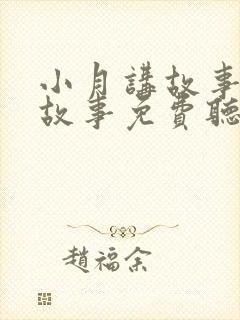 小月講故事
故事免費聽
趙福余